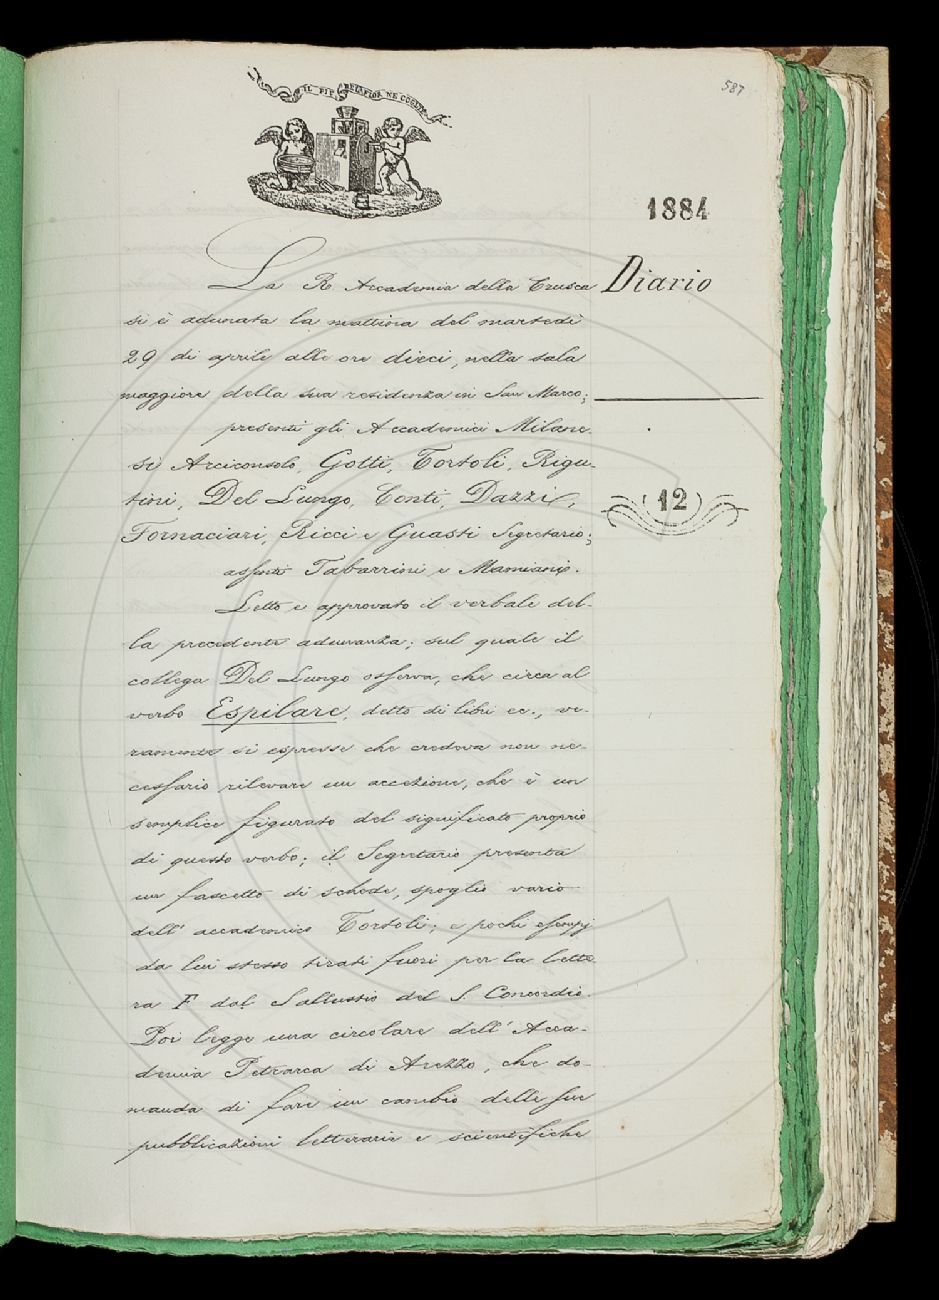 587
IL PIÙ BEL FIOR NE COGLIE
1884
Diario
12
La R. Accademia della Crusca
si è adunata la mattina del martedì
29 di aprile alle ore dieci, nella sala
maggiore della sua residenza in San Marco;
presenti gli Accademici Milane
si Arciconsolo, Gotti, Tortoli, Rigu-
tini, Del Lungo, Conti, Dazzi,
Fornaciari, Ricci e Guasti Segretario;
assenti Tabarrini e Mamiani.
Letto e approvato il verbale del-
la precedente adunanza; sul quale il
collega Del Lungo osserva, che circa al
verbo Espilare, detto di libri ec., ve-
ramente si espresse che credeva non ne-
cessario rilevare un accezione, che è un
semplice figurato del significato proprio
di questo verbo; il Segretario presenta
un fascetto di schede, spoglio vario
dell' accademico Tortoli; e pochi esempj
da lui stesso tirati fuori per la lette
ra F dal Sallustio del S. Concordio.
Poi legge una circolare dell' Acca-
demia Petrarca di Arezzo, che do-
manda di fare un cambio delle sue
pubblicazioni letterarie e scientifiche